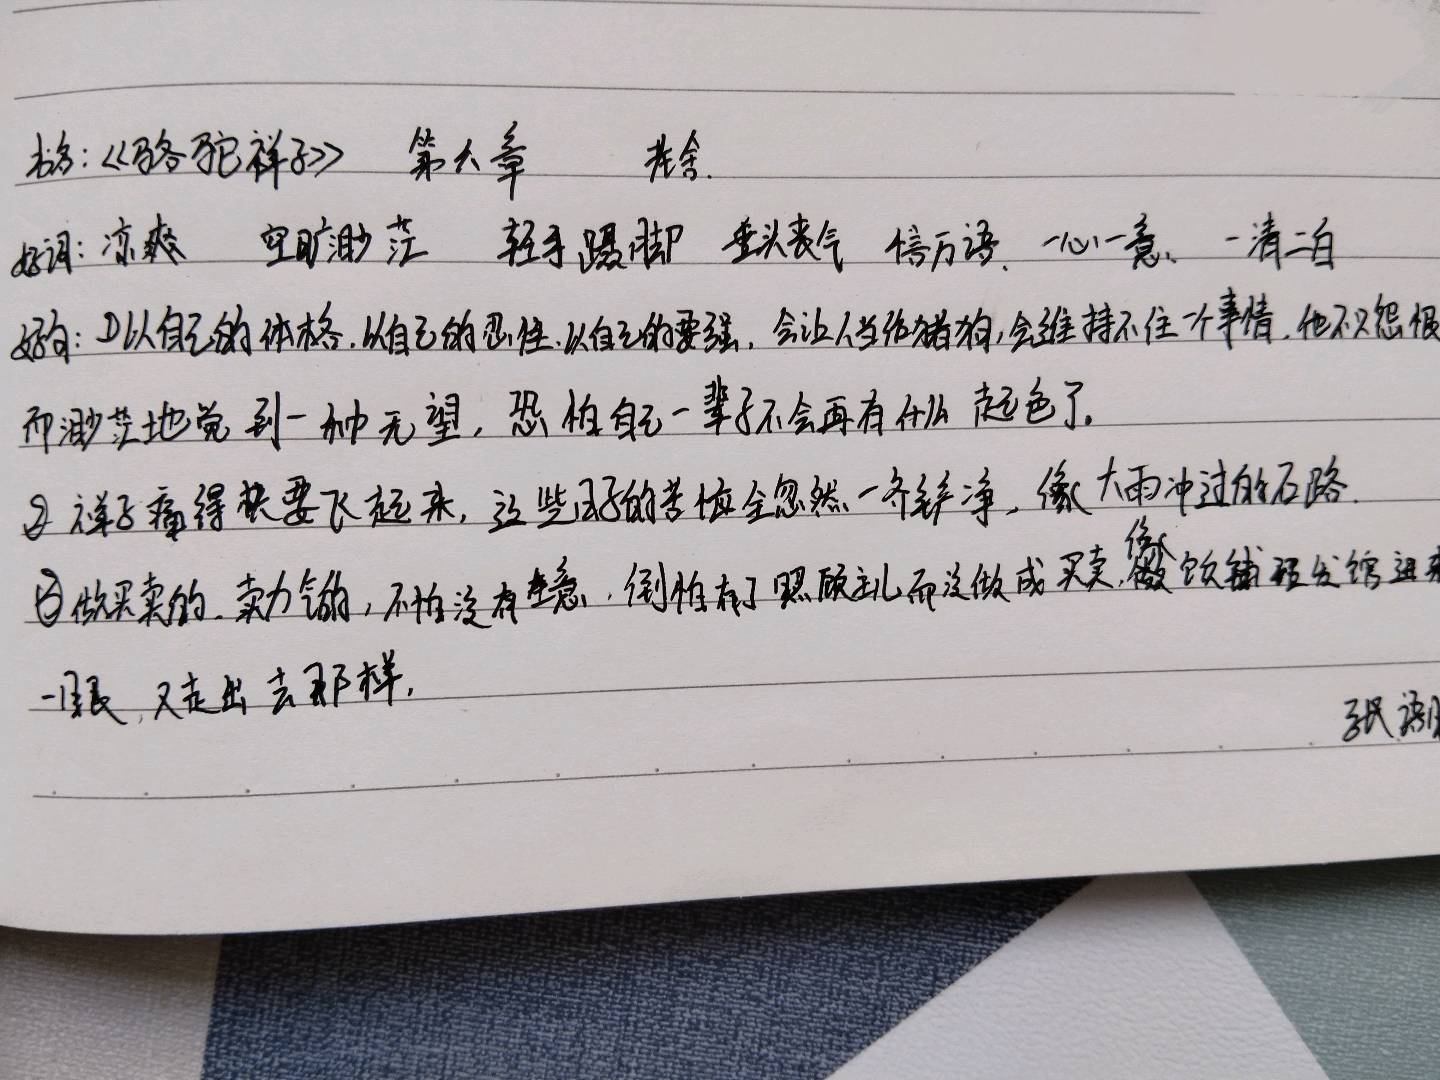 书名：《骆驼祥子》 第六章 老舍.
好词：凉爽 空旷渺茫 轻手蹑脚 垂头丧气 信方语、一心一意、一清二白
好句：①以自己的体格，以自己的忍性，以自己的要强，会让人当作猪狗，会维持不住一个事情，他不只怨恨
而渺茫地觉到一种无望，恐怕自己一辈子不会再有什么起色了。
② 祥子痛得要飞起来，这些日子的苦恼全忽然一齐铲净，像大雨冲过的石路.
③做买卖的，卖力气的，不怕没有生意，倒怕有了照顾主儿而没做成买卖，像饭铺理发馆进来
一眼，又走出去那样，
张